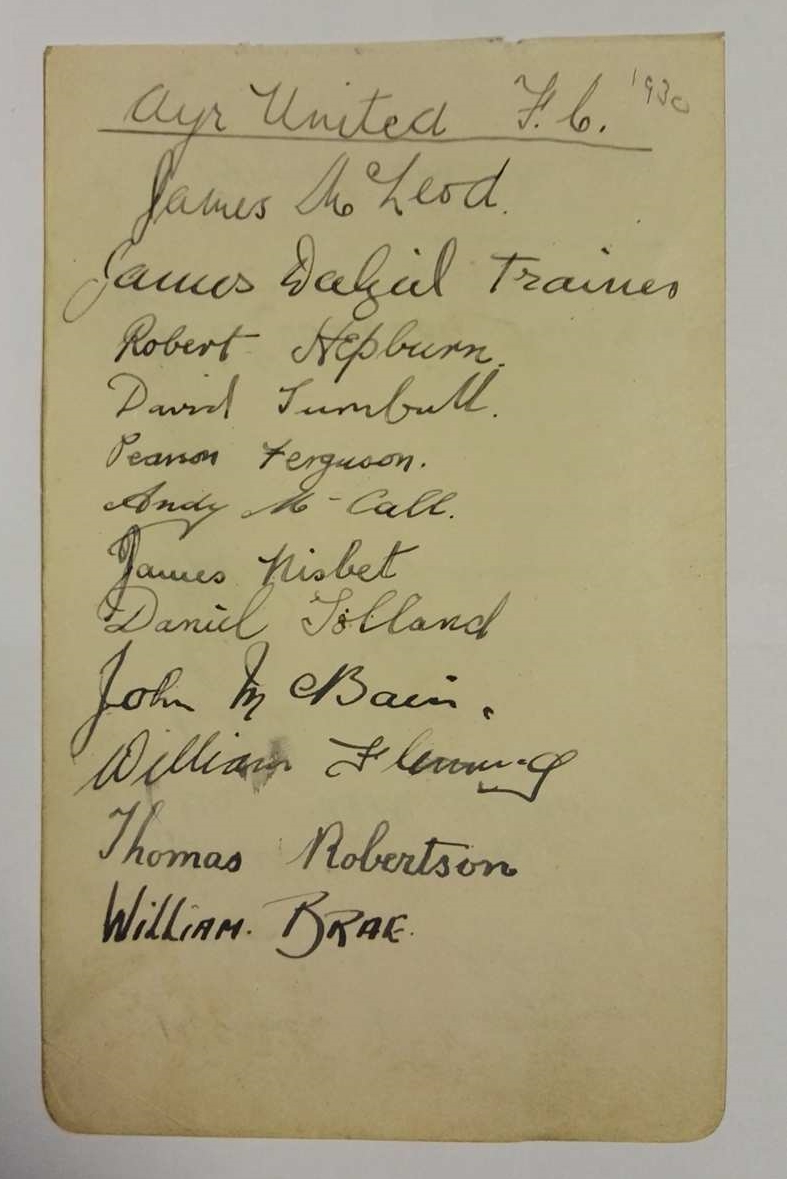 Ayr United F.C. 1930
James McLeod.
James Dalziel Trainer
Robert Hepburn.
David Turnbull.
Pearson Ferguson.
Andy Mc-Call.
James Nisbet
Daniel Tolland
John McBain.
William Fleming
Thomas Robertson
WILLIAM. BRAE.